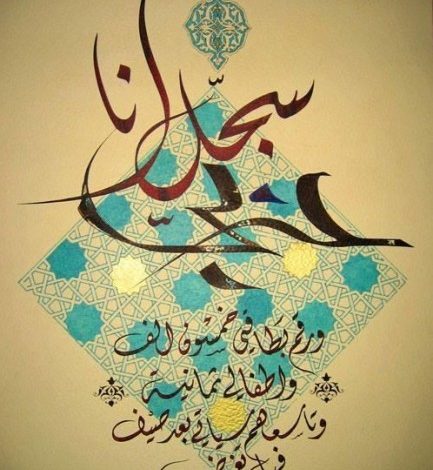 سجّل انا
عربي
ورقم بطاقتي خمسون الف
واطفالي ثمانية
وتاسعهم سياتي بعد صيف